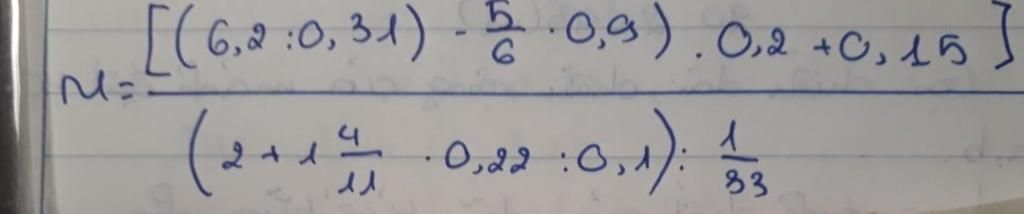 [(6,2 : 0,31) - 5/6 · 0,9) . 0,2 + 0,15]
M = ———
(2 + 1 4/11 · 0,22 : 0,1) : 1/33